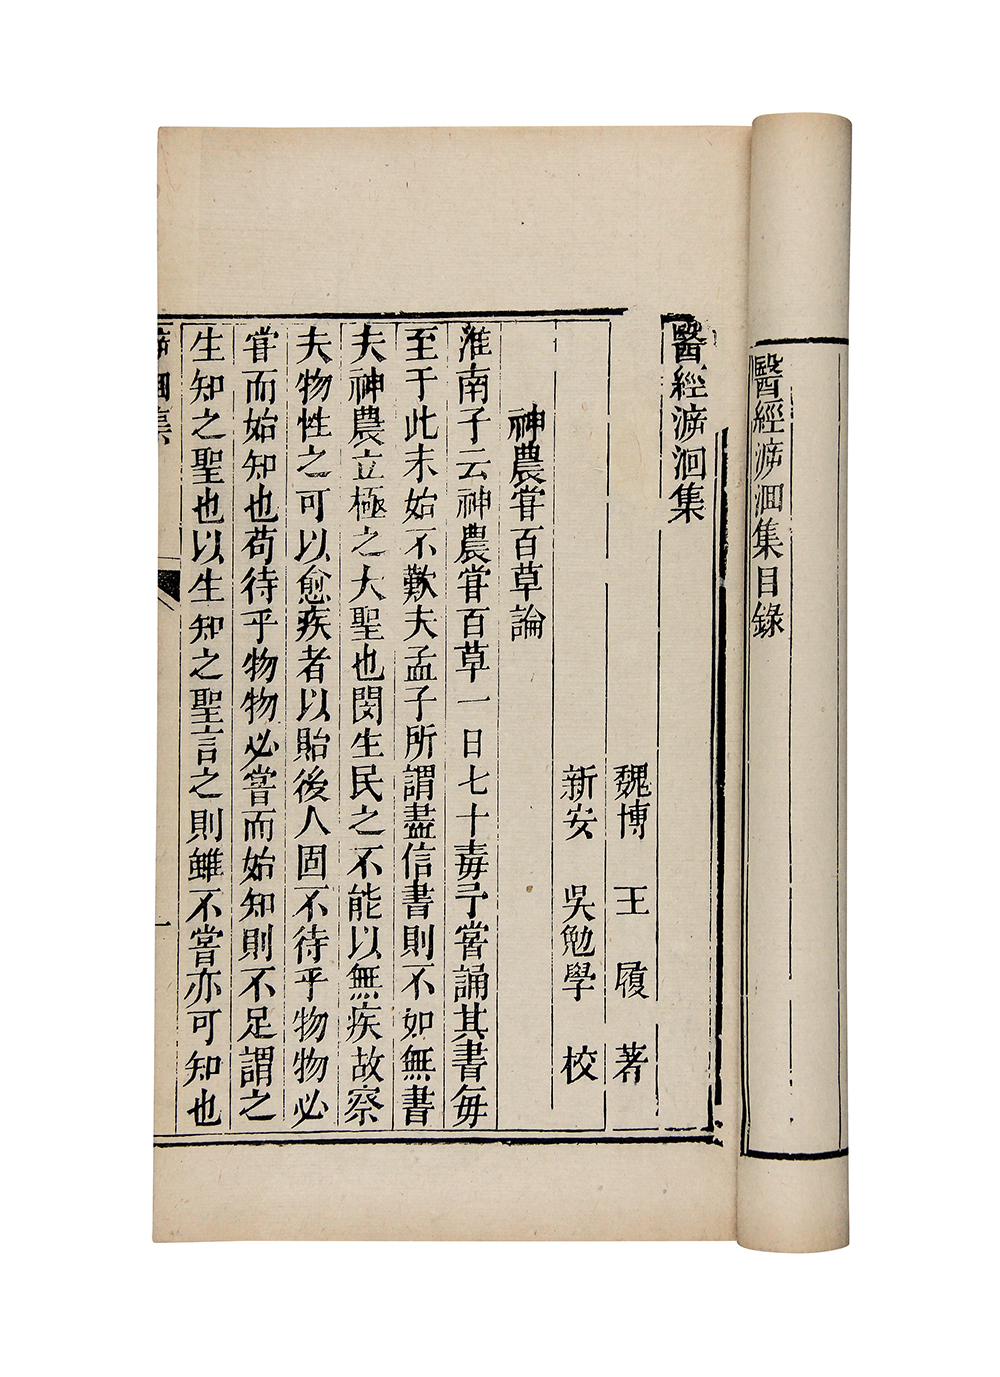 醫經泝洄集目錄
醫經泝洄集
魏博 王履 著
新安 吳勉學 校
神農嘗百草論
淮南子云神農嘗百草一日七十毒予嘗誦其書每
至于此未始不歎夫孟子所謂盡信書則不如無書
夫神農立極之大聖也閔生民之不能以無疾故察
夫物性之可以愈疾者以貽後人固不待乎物物必
嘗而始知也苟待乎物物必嘗而始知則不足謂之
生知之聖也以生知之聖言之則雖不嘗亦可知也
泝洄集
一